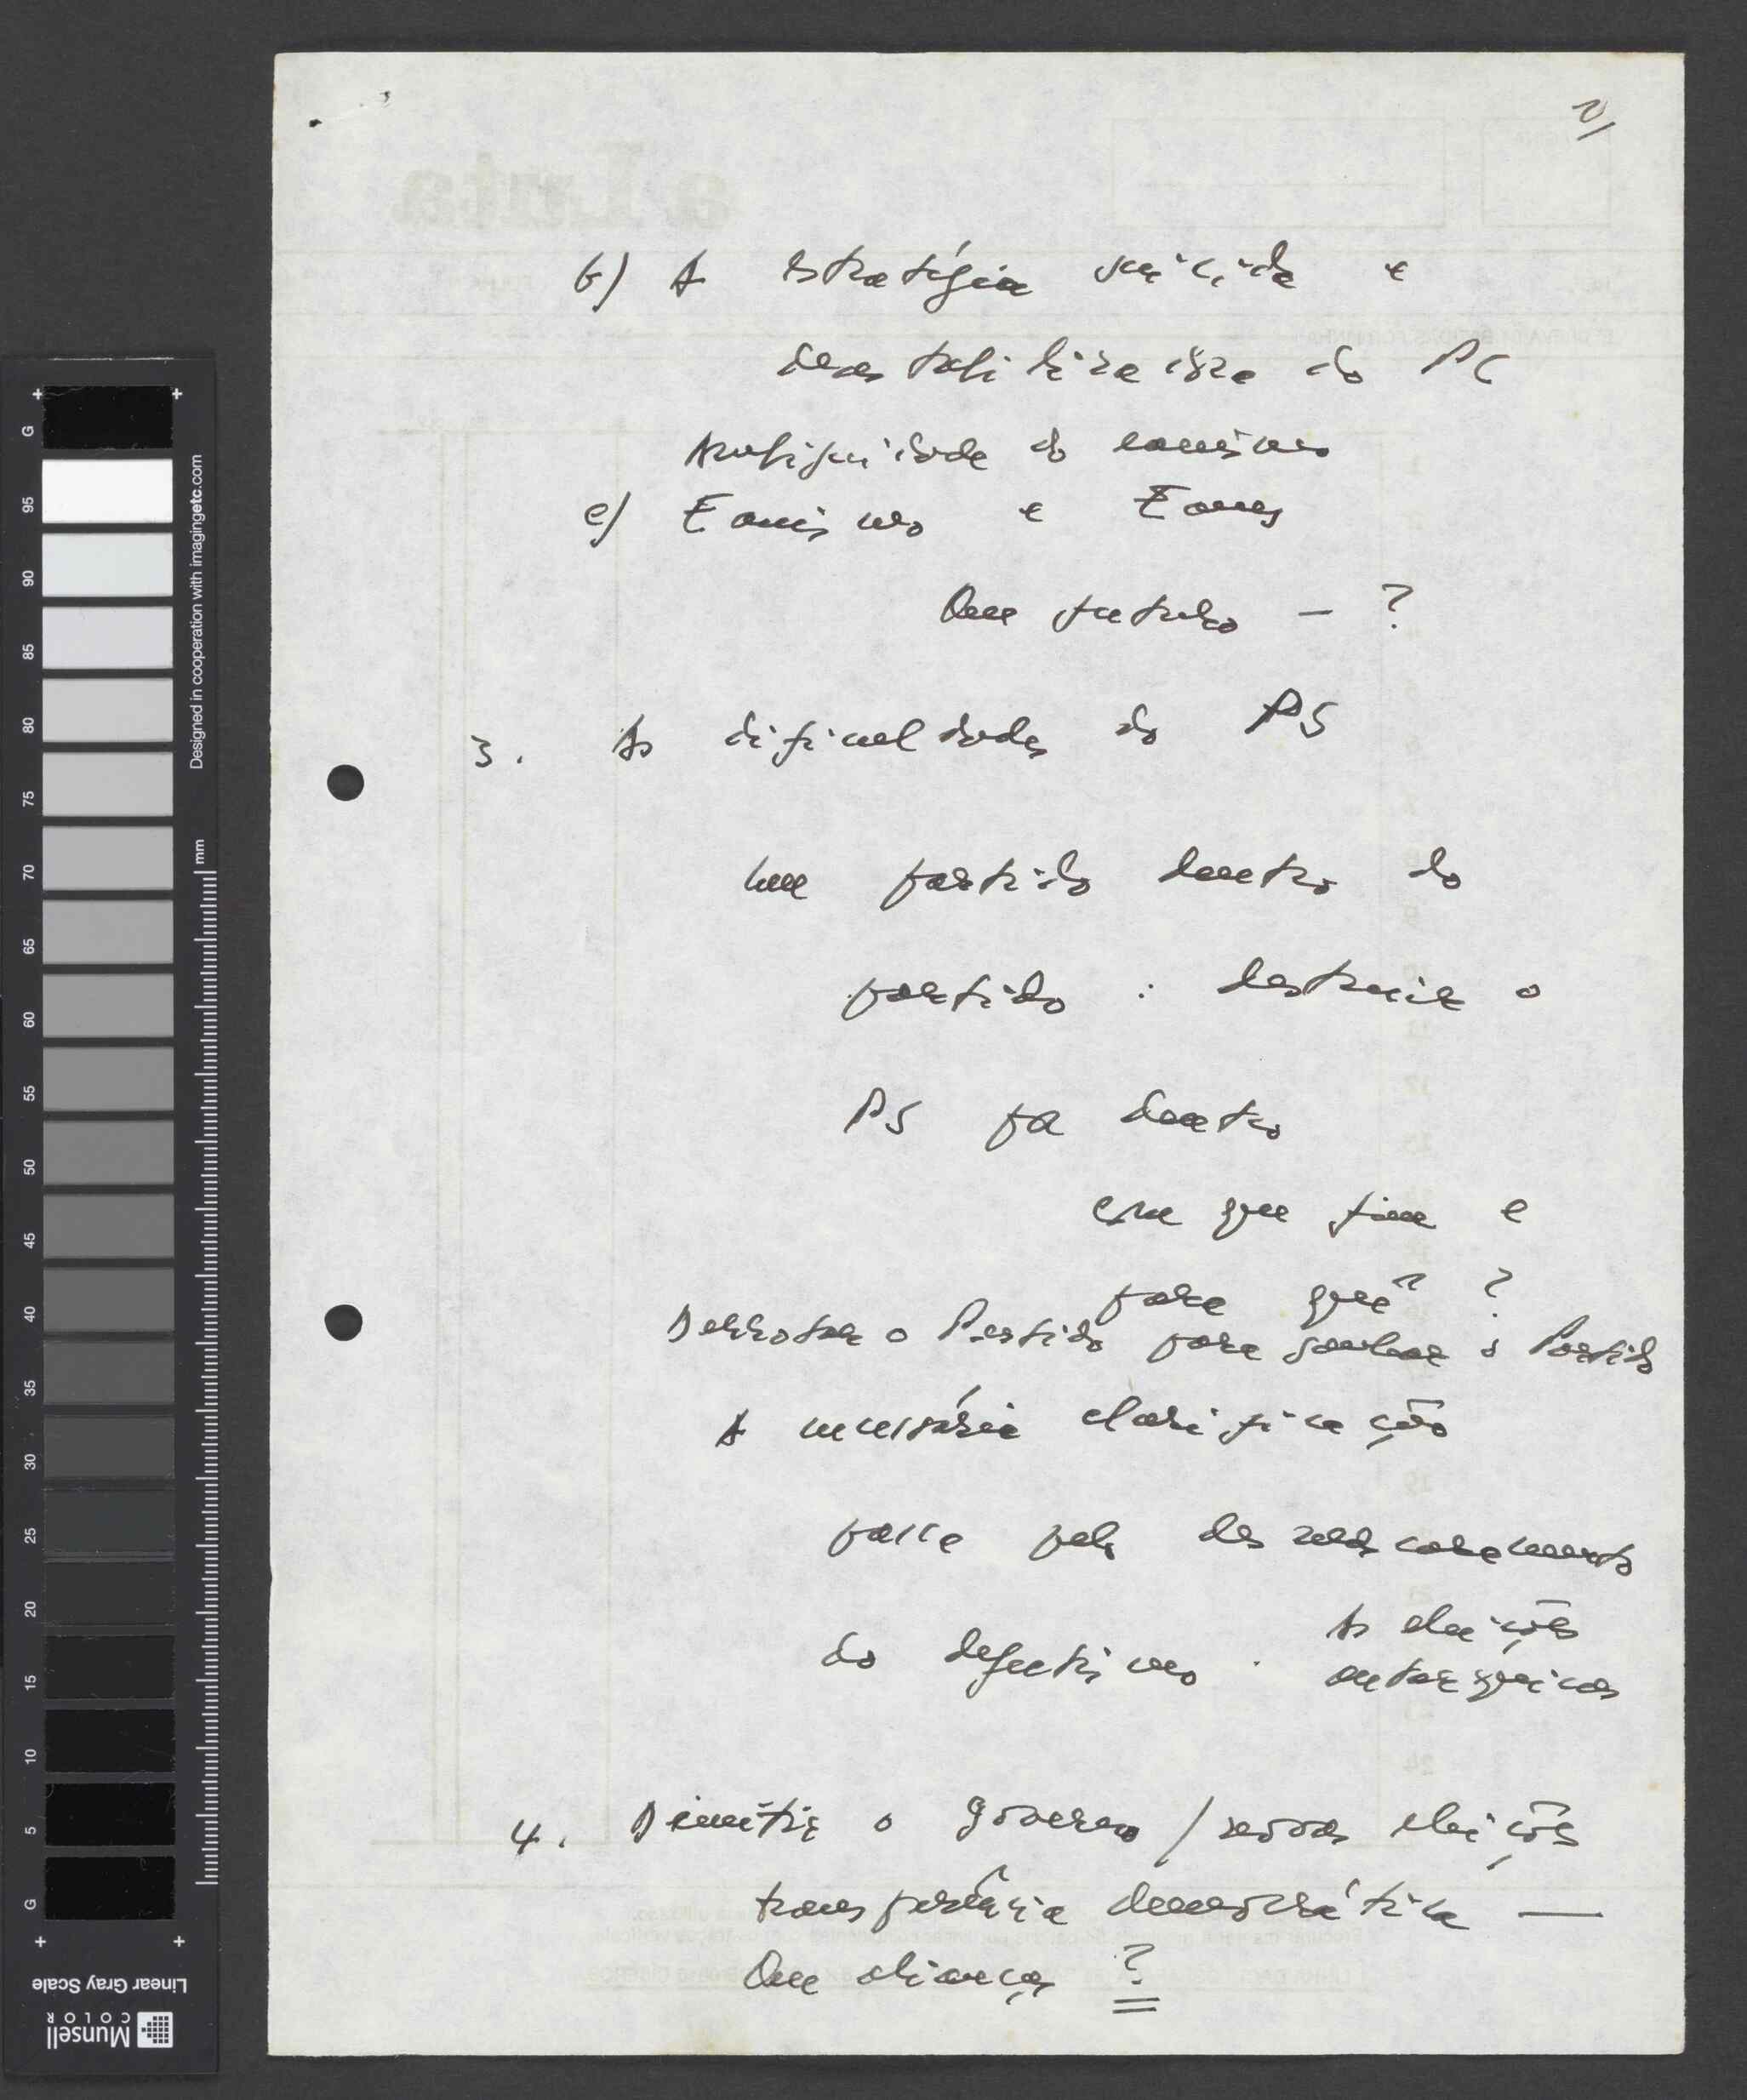 2/
b) A estratégia suicida e
desestabilizadora do PC
Ambiguidade do eanismo
c) Eanismo e Eanes
Que futuro – ?
3. As dificuldades do PS
Um partido dentro do
partido : destruir o
PS por dentro
com que fim e
para quê ?
Derrotar o Partido para ganhar o Partido
A necessária clarificação
passa pelo desmascaramento
do
As eleições
autárquicas
4. Demitir o governo / novas eleições
transparência democrática —
Que alianças ?
a Luta
G
95
90
85
80
75
70
65
60
55
50
45
40
35
30
25
20
15
10
5
G
Designed in cooperation with imagingetc.com
mm
Linear Gray Scale
Munsell
COLOR